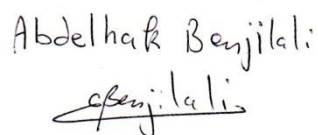 Abdelhak Benjilali
Benjilali